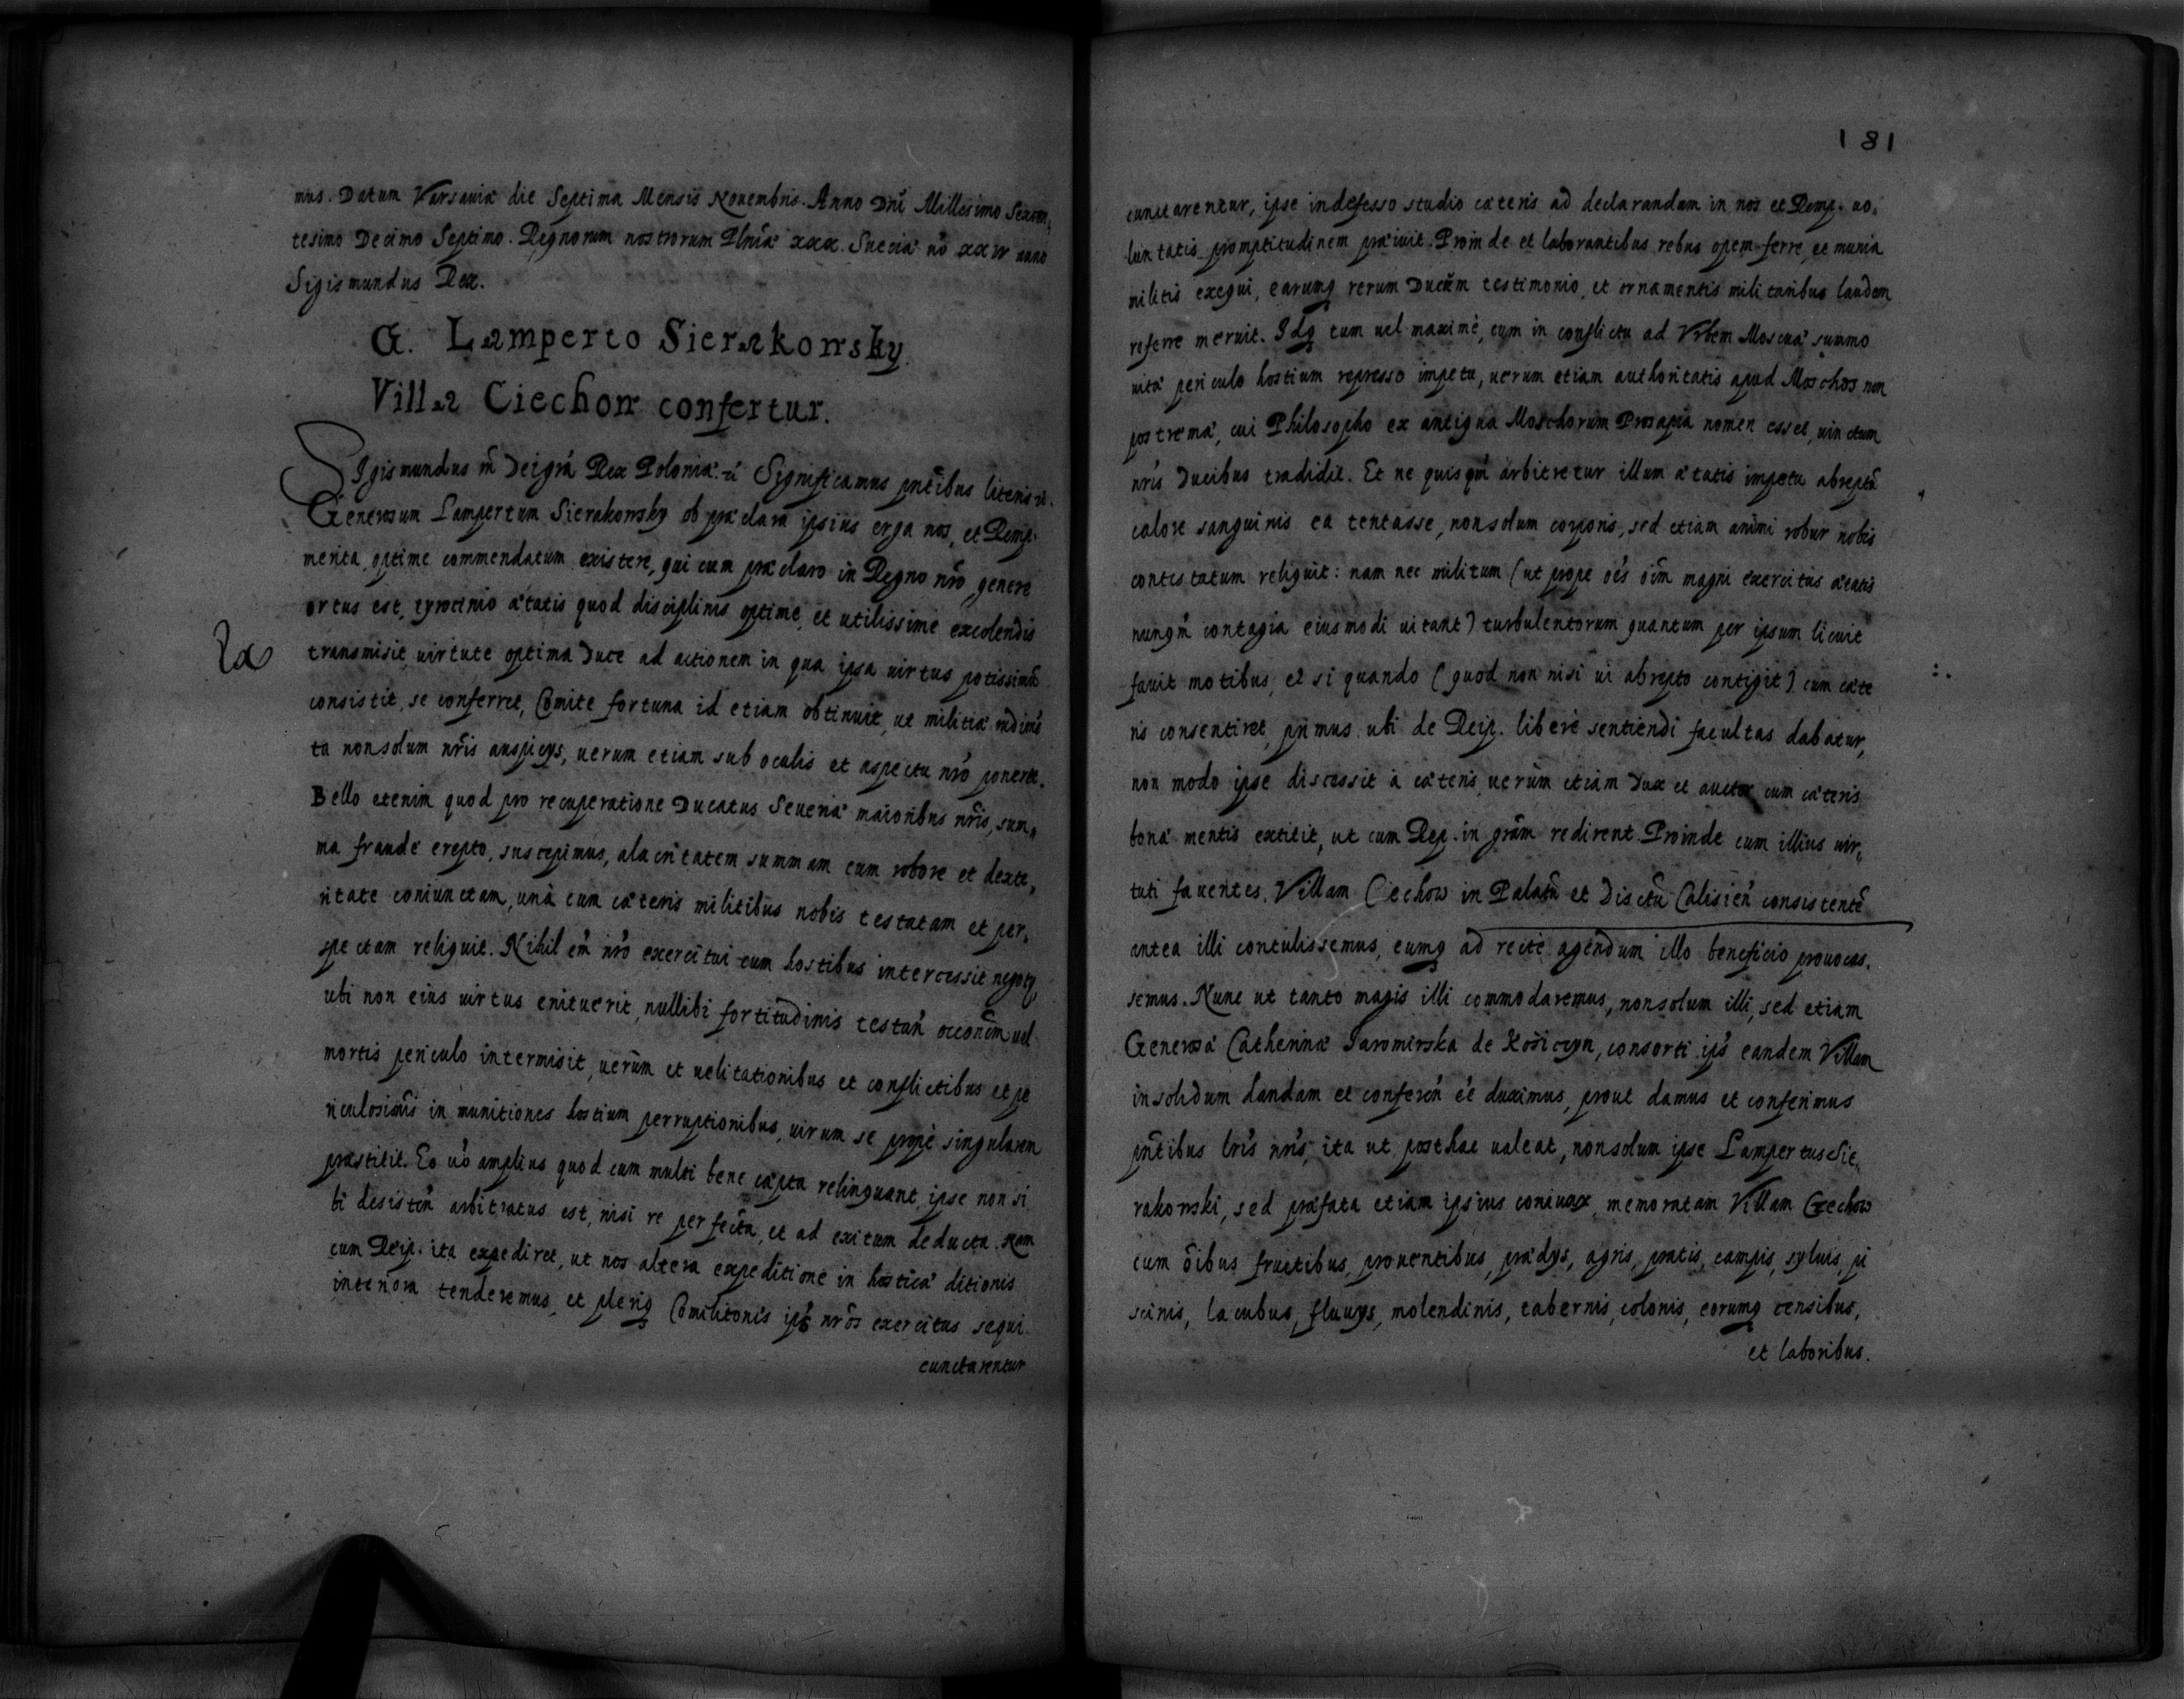 mus. Datum Varsauiæ die Septima Mensis Nouembris. Anno Dnĩ Millesimo Sexcen,
tesimo Decimo Septimo. Regnorum nostrorum Plniæ xxx. Sueciæ nõ xxiv anno
Sigismundus Rex.
G. Lamperto Sierakowsky
Villa Ciechow confertur.
SIgismundus 3 Dei grã Rex Poloniæ Significamus pntibus literis
Generosum Lampertum Sierakowsky ob præclara ipsius erga nos, et Remp.
merita optime commendatum existere, qui cum præclaro in Regno nrõ genere
ortus est, tyrocinio ætatis quod disciplinis optime, et utilissime excolendis
transmisit uirtute optima Duce ad actionem in qua ipsa uirtus potissimũ
consistit, se conferret, Comite fortuna id etiam obtinuit, ut militiæ rudimẽ
ta nonsolum nrĩs auspicijs, uerum etiam sub oculis et aspectu nrõ poneret.
Bello etenim quod pro recuperatione Ducatus Seueriæ maioribus nrĩs, sum,
ma fraude erepto, suscepimus, alacritatem summam cum robore et dexte,
ritate coniunctam, unà cum cæteris militibus nobis testatam et per,
spectam reliquit. Nihil em̃ nrõ exercitui cum hostibus intercessit negoty,
ubi non eius uirtus enituerit, nullibi fortitudinis testañ occõnem uel
mortis periculo intermisit, uerùm et uelitationibus et conflictibus et pe
riculosissimis in munitiones hostium perruptionibus, uirum se propè singularem
præstitit. Eo uõ amplius quod cum multi bene cæpta relinquant, ipse non si
bi desisteñ arbitratus est, nisi re perfecta, et ad exitum deducta. Nam
cum Reip. ita expediret, ut nos altera expeditione in hosticæ ditionis
interiora tenderemus, et pleriq Comilitonis ipś nrõs exercitus sequi
cunctarentur
181
cunctarentur, ipse indefesso studio cæteris ad declarandam in nos et Remp. uo,
luntatis promptitudinem præiuit. Proinde et laborantibus rebus opem ferre, et munia
militis exequi, earumq rerum Ducum testimonio, et ornamentis militaribus laudem
referre meruit. Idq tum uel maximè, cum in conflictu ad Vrbem Moscuæ summo
uitæ periculo hostium represso impetu, uerum etiam authoritatis apud Moschos non
postremæ, cui Philosopho ex antiqua Moschorum Prosapia nomen esset, uinctum
nrĩs Ducibus tradidit. Et ne quisqm̃ arbitretur illum ætatis impetu abreptũ
calore sanguinis ea tentasse, nonsolum corporis, sed etiam animi robur nobis
contestatum reliquit: nam nec militum (ut prope oẽs oĩm magni exercitus ætatis
nunqm̃ contagia eiusmodi uitant) turbulentorum quantum per ipsum licuit
fauit motibus, et si quando (quod non nisi ui abrepto contigit) cum cæte
ris consentiret, primus ubi de Reip. liberè sentiendi facultas dabatur,
non modo ipse discessit à cæteris, uerùm etiam Dux et auctor cum cæteris
bonæ mentis extitit, ut cum Rep. in grãm redirent. Proinde cum illius uir,
tuti fauentes. Villam Ciechow in Palatũ et Districtũ Calisień consistentẽ
antea illi contulissemus, eumq ad rectè agendum illo beneficio prouocas,
semus. Nunc ut tanto magis illi commodaremus, nonsolum illi, sed etiam
Generosæ Catherinæ Jaromirska de Kosiczyn, consorti ipś eandem Villam
insolidum dandam et confereñ eẽ duximus, prout damus et conferimus
pñtibus lrĩs nrĩs, ita ut posthac ualeat, nonsolum ipse Lampertus Sie,
rakowski, sed præfata etiam ipsius coniunx, memoratam Villam Czechow
cum oĩbus fructibus, prouentibus, prædijs, agris, pratis, campis, syluis, pi
scinis, lacubus, fluuijs, molendinis, tabernis, colonis, eorumq censibus,
et laboribus.